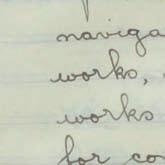 naviga
works,
works
for co